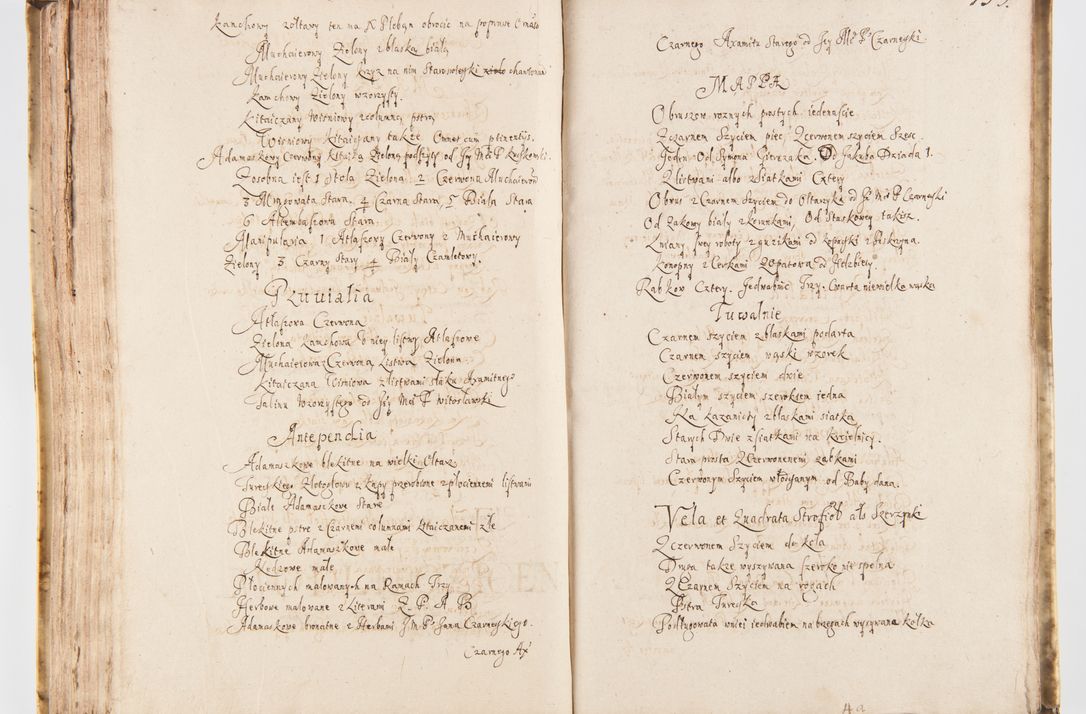 Kamchowy zołtawy ten na X Pleban obrocic na poprawe Ornato
Muchaierowy Zielony z blaska białą
Muchaierowy Zielony krzyz na nim Staroswieczki chartowa
Kamchowy Zielony wzorzysty
Kitaiczany Wisniowy z columną pstrą
Wisniowy Kitaiczany także Omnes cum ptinentijs.
Adamaskowy Czerwony Kitaiką Zieloną podszyty od Jey Mci P.
Zosobna iest 1 Stola Zielona 2 Czerwona Muchaierow
3 Stara, 4 Czarna Stara, 5 Biała Stara
6 Altembasowa Stara
Manipularia 1 Atłaszowy Czerwony 2 Muchaierowy
Zielony 3 Czarny Stary 4 Biały Czamletowy.
Pluuialia
Atłasowa Czerwona
Zielona Kamchowa v niey listwy Atłasowe
Muchaierowa Czerwona, Listwa Zielona
Kitaiczana Wisniowa z listwami Axamitnego
Talinu Wzorzystego od Jey Mci P. Witosławski
Antependia
Adamaszkowe blekitne na wielki Ołtarz
Tureczkiego Złotogłowu z kusty przerobione z płociennemi listwami
Białe Adamaszkowe Stare
Blekitne pstre z Czarnemi columnami Kitaiczanemi złe
Blekitne Adamaszkowe małe
małe
Płociennych malowanych na Ramach Trzy
Herbowe malowane z Literami Z. P. A. B
Adamaskowe bronatne z Herbami J.M.P. Jana Czarneckiego.
Czarnego Ax
Czarnego Axamitu Starego od Jey Mci P. Czarneyki
MAPPA
Obrusow roznych prostych iedenascie
Z czarnem Szyciem pięć Z czerwonem szyciem Szesc.
Jeden Od Symona Od Jakuba Dziada 1.
Z listwami albo z Siatkami Cztery
Obrus z Czarnem Szyciem do Ołtarzyka od Je Mci P. Czarneyki
Od Zakowy biały z koronkami, Od Staskowey takisz.
Lniany, swey roboty z guzikami od
Konopny z Czerkami Zopatowa od
Rąbkow Cztery. Jedwabnic Trzy. Czwarta niewielka wąska
Tuwalnie
Czarnem szyciem z blaskami podarta
Czarnem szyciem wąski wzorek
Czerwonem szyciem dwie
Białym szyciem szerokiem iedna
Na kazanicy z blaskami siatka
Starych Dwie z siatkami na krzcielnicy.
Stara prosta Z Czerwonemi ząbkami
Czerwonym Szyciem od Baby dana.
Vela et Quadrata Strofiob abo Szerzynki
Z czerwonem Szyciem do koła
Druga także wyszywana szeroko nie spełna
Z Czarnem Szyciem na rogach
Pstra Turecka
Podługowata iedwabiem na brzegach wyszywana kółka
4a